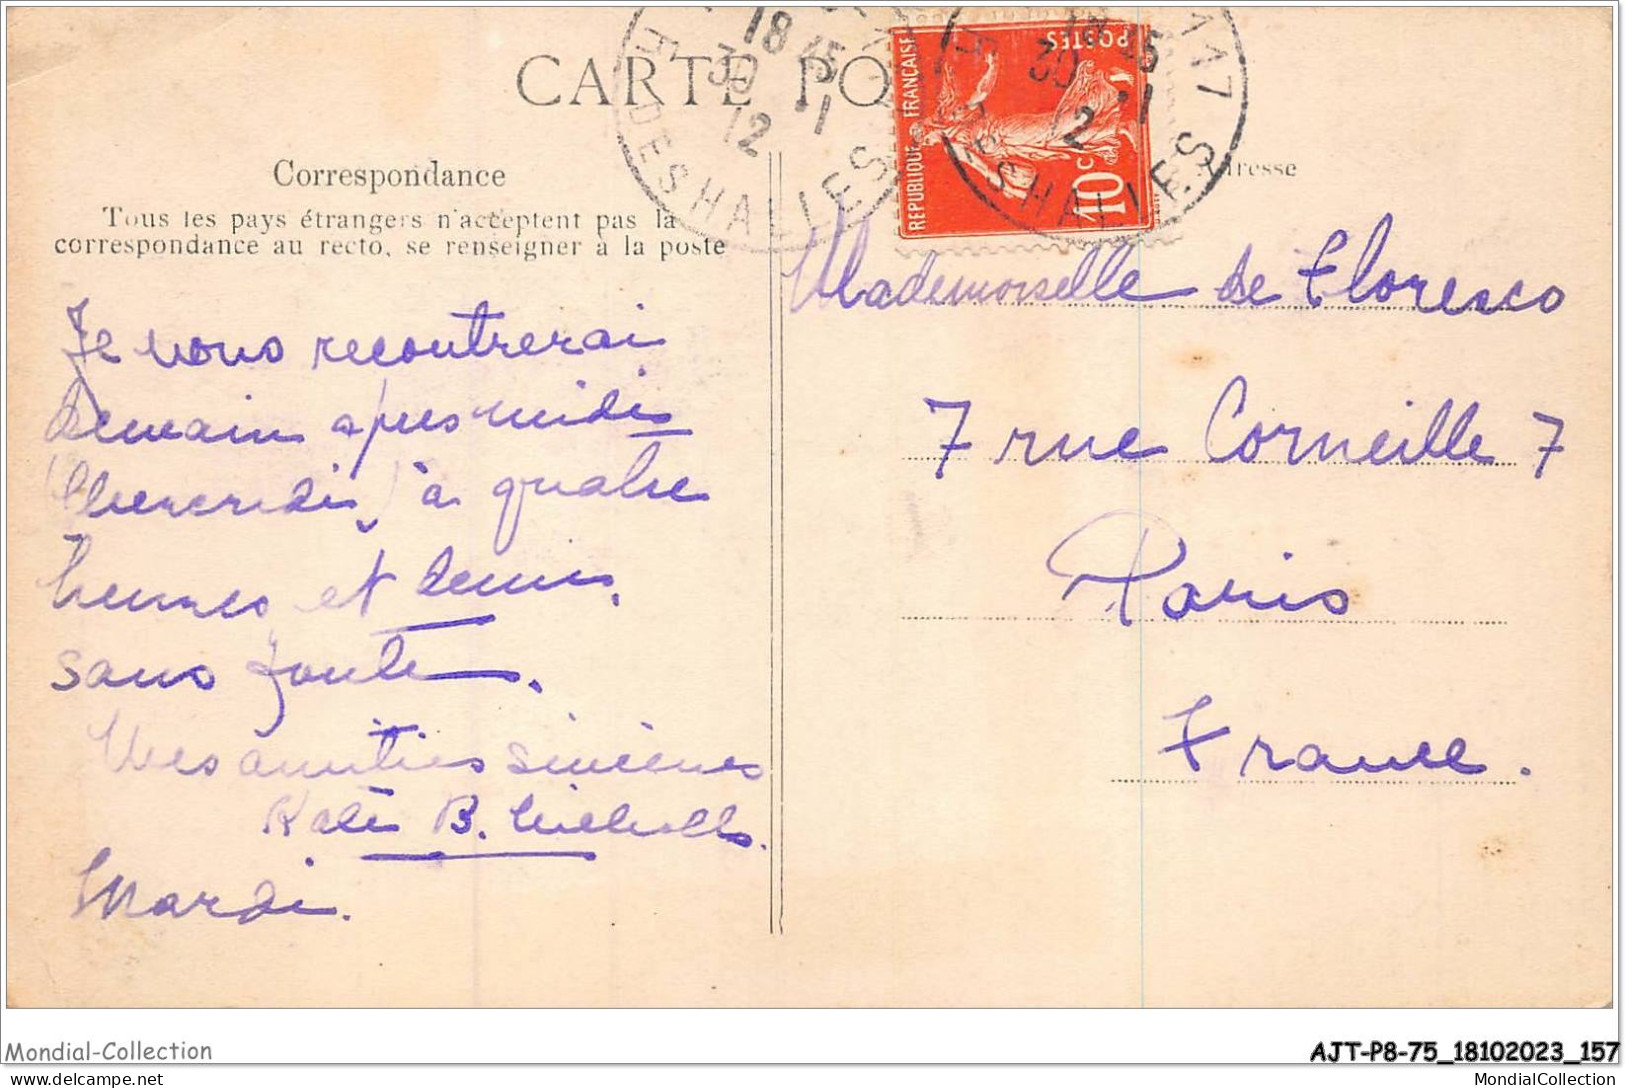 CARTE PO
18 15
30 -1
12
R. DES HALLES
RÉPUBLIQUE FRANÇAISE
POSTES
10c
18 15
30 -1
12
117
R. DES HALLES
Correspondance
Tous les pays étrangers n'acceptent pas la
correspondance au recto, se renseigner à la poste
Je vous recontrerai
demain après midi
(Mercredi) à quatre
heures et demis,
sans faute.
Mes amitiés sincères
Kate B.
Mardi.
Adresse
Mademoiselle de Floresco
7 rue Corneille 7
Paris
France.
Mondial-Collection
AJT-P8-75_18102023_157
www.delcampe.net
MondialCollection